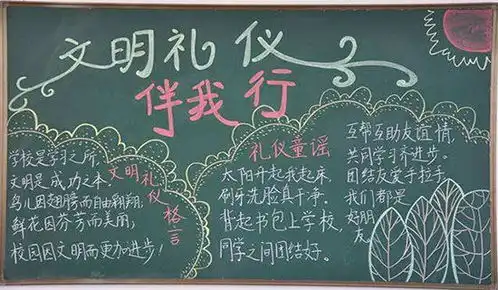 文明礼仪
伴我行
文明礼仪格言
学校是学习之所,
文明是成功之本,
鸟儿因翅膀而自由翱翔,
鲜花因芬芳而美丽,
校园因文明而更加进步!
礼仪童谣
太阳升起我起床
刷牙洗脸真干净.
背起书包上学校,
同学之间团结好。
互帮互助友谊情,
共同学习齐进步。
团结友爱手拉手,
我们都是
好朋友。